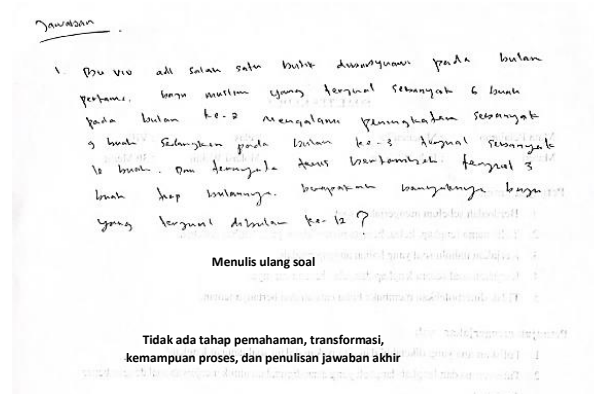 Jawaban.
1. Bu vio adl salah satu butik disurabaya pada bulan
pertama. baju muslim yang terjual sebanyak 6 buah
pada bulan ke-2 mengalami peningkatan sebanyak
9 buah. Sedangkan pada bulan ke-3 terjual sebanyak
buah. Dan ternyata terus bertambah terjual 3
buah tiap bulannya. berapakah banyaknya baju
yang terjual dibulan ke-12 ?
Menulis ulang soal
Tidak ada tahap pemahaman, transformasi,
kemampuan proses, dan penulisan jawaban akhir